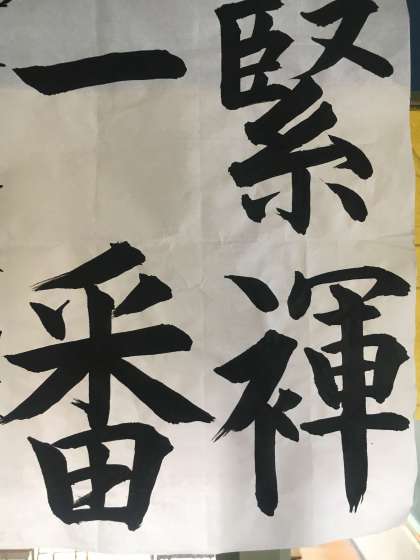 緊褌
一番